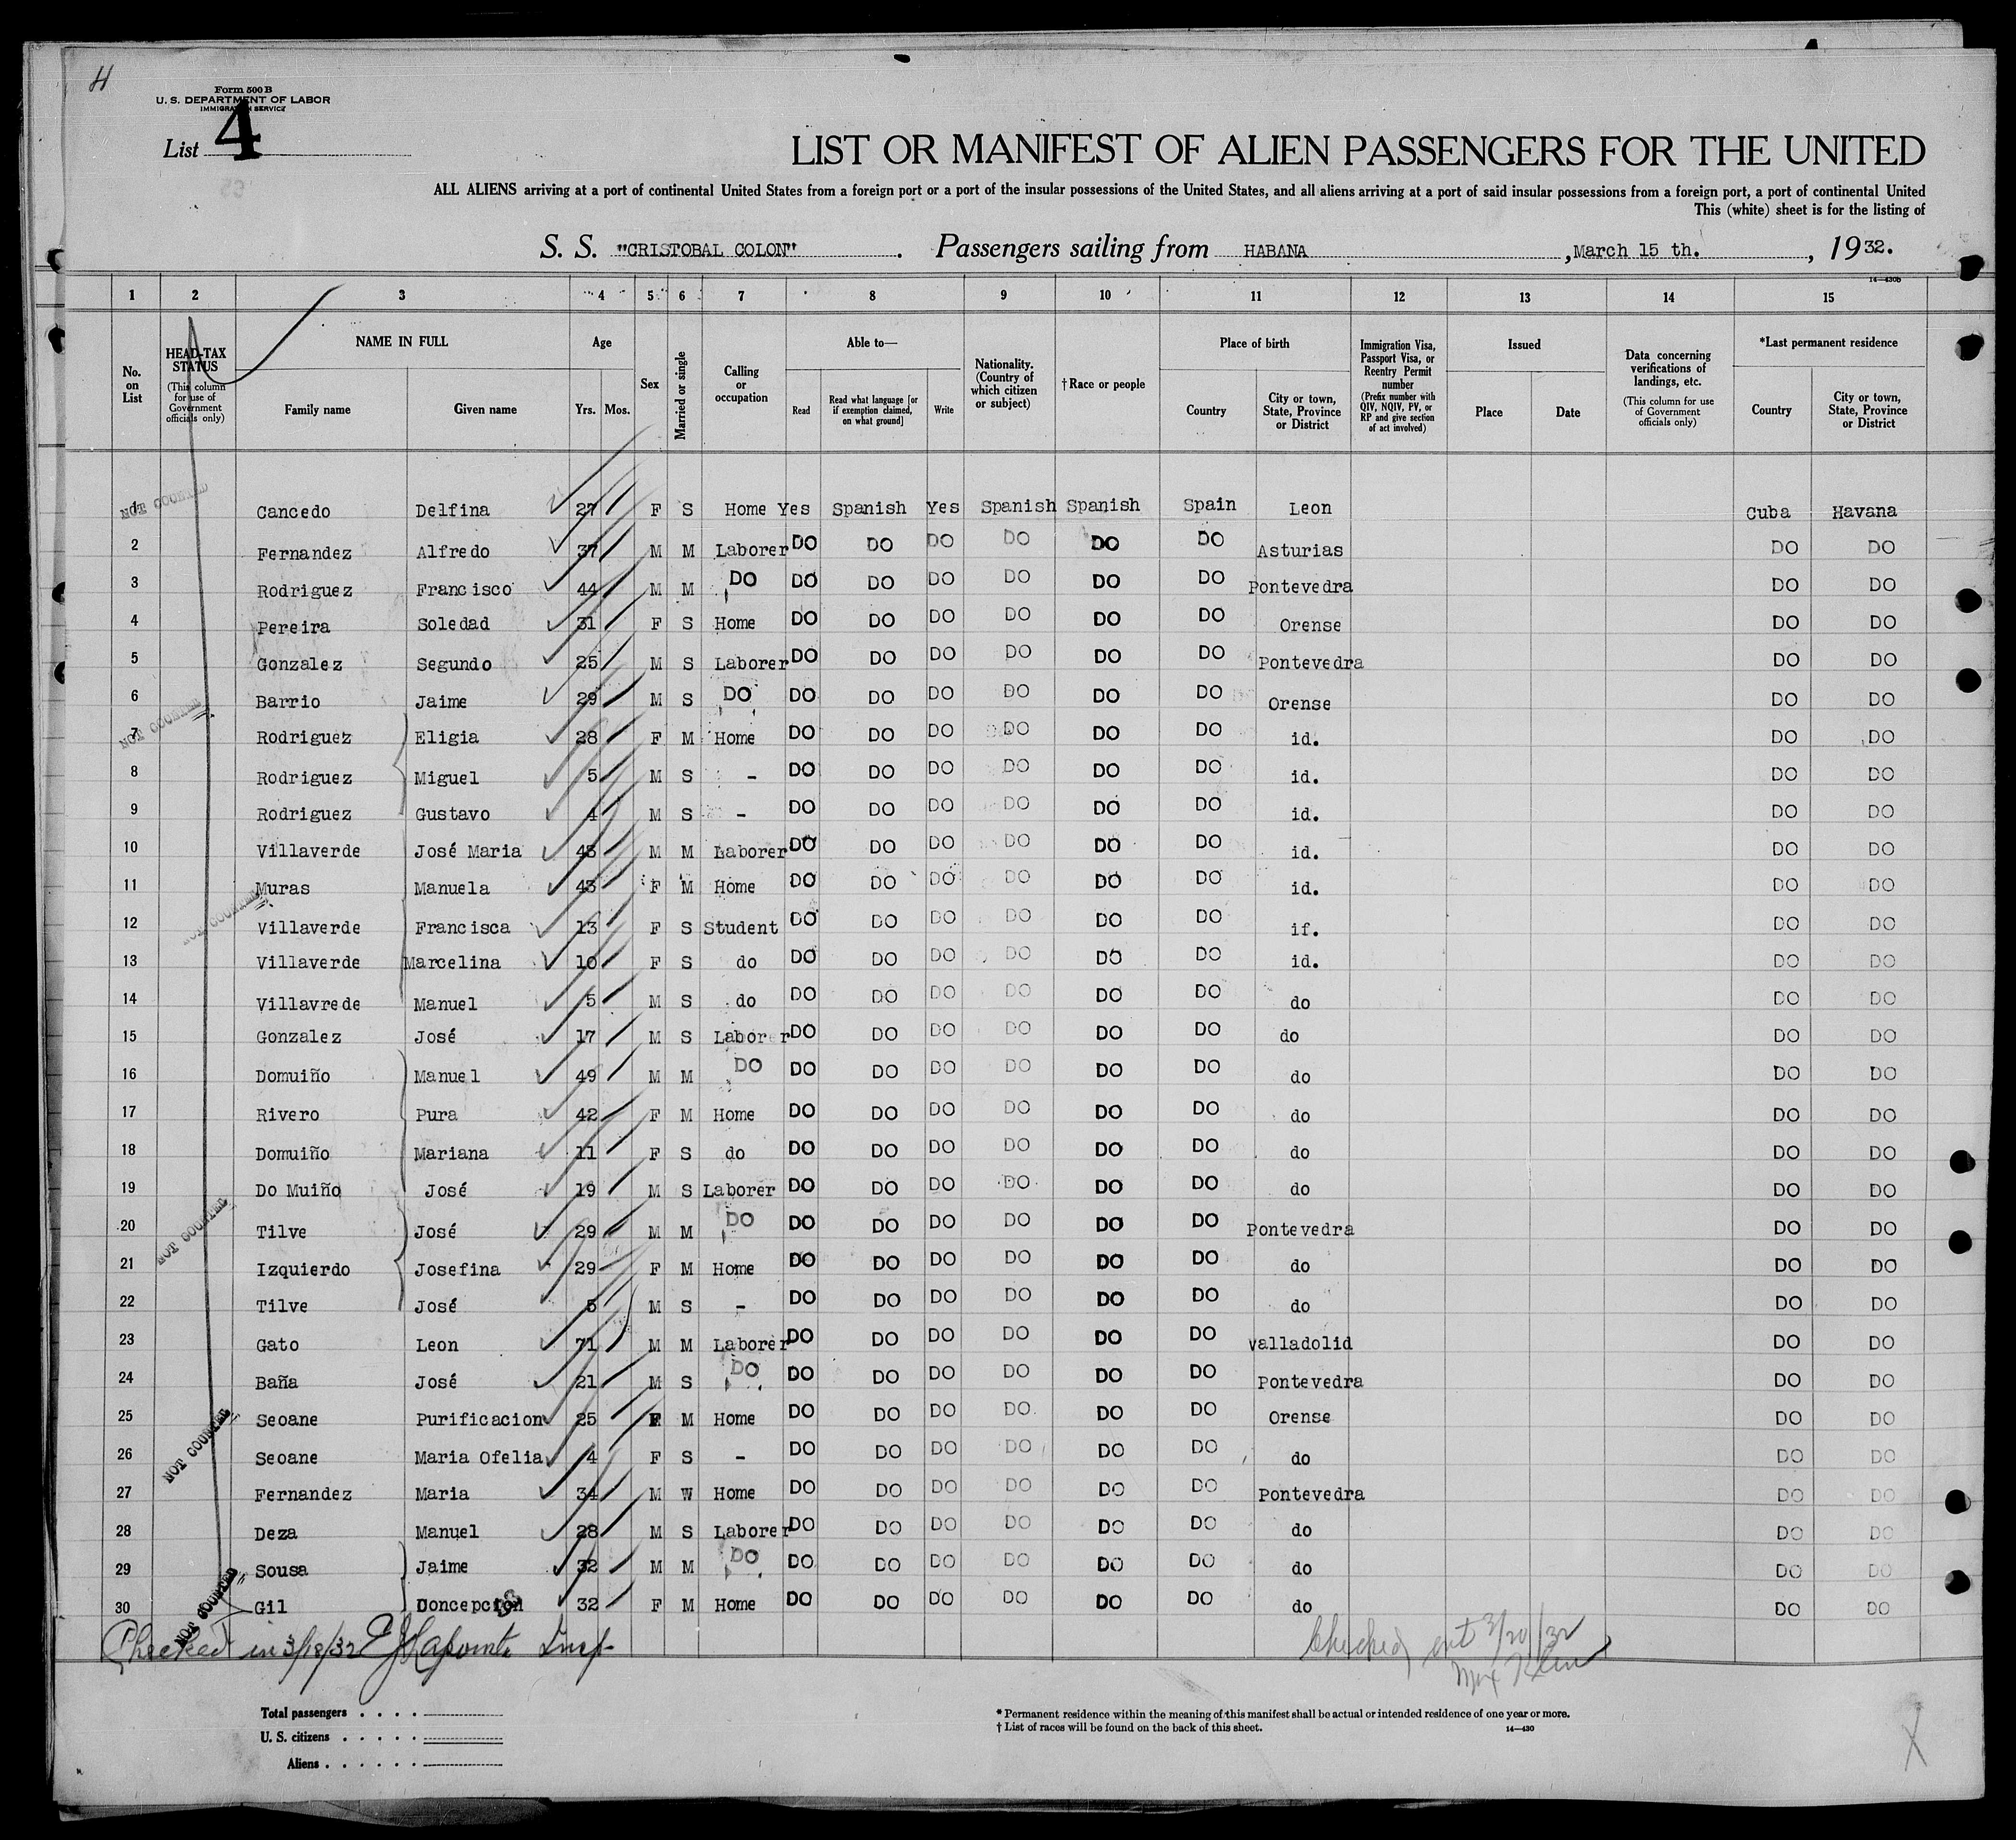 4
Form 500 B
U. S. DEPARTMENT OF LABOR
IMMIGRATION SERVICE
List 4
LIST OR MANIFEST OF ALIEN PASSENGERS FOR THE UNITED
ALL ALIENS arriving at a port of continental United States from a foreign port or a port of the insular possessions of the United States, and all aliens arriving at a port of said insular possessions from a foreign port, a port of continental United
This (white) sheet is for the listing of
S. S. "CRISTOBAL COLON". Passengers sailing from HABANA, March 15 th., 1932.
14—430b
1 2 3 4 5 6 7 8 9 10 11 12 13 14 15
No. on List
HEAD-TAX STATUS (This column for use of Government officials only)
NAME IN FULL Family name Given name
Age Yrs. Mos.
Sex
Married or single
Calling or occupation
Able to— Read Read what language [or if exemption claimed, on what ground] Write
Nationality. (Country of which citizen or subject)
†Race or people
Place of birth Country City or town, State, Province or District
Immigration Visa, Passport Visa, or Reentry Permit number (Prefix number with QIV, NQIV, PV, or RP and give section of act involved)
Issued Place Date
Data concerning verifications of landings, etc. (This column for use of Government officials only)
*Last permanent residence Country City or town, State, Province or District
1 NOT COUNTED Cancedo Delfina 27 F S Home Yes Spanish Yes Spanish Spanish Spain Leon Cuba Havana
2 Fernandez Alfredo 37 M M Laborer DO DO DO DO DO DO Asturias DO DO
3 Rodriguez Francisco 44 M M DO DO DO DO DO DO DO Pontevedra DO DO
4 Pereira Soledad 31 F S Home DO DO DO DO DO DO Orense DO DO
5 Gonzalez Segundo 25 M S Laborer DO DO DO DO DO DO Pontevedra DO DO
6 Barrio Jaime 29 M S DO DO DO DO DO DO DO Orense DO DO
7 NOT COUNTED Rodriguez Eligia 28 F M Home DO DO DO DO DO DO id. DO DO
8 Rodriguez Miguel 5 M S - DO DO DO DO DO DO id. DO DO
9 Rodriguez Gustavo 4 M S - DO DO DO DO DO DO id. DO DO
10 Villaverde José Maria 43 M M Laborer DO DO DO DO DO DO id. DO DO
11 Muras Manuela 43 F M Home DO DO DO DO DO DO id. DO DO
12 NOT COUNTED Villaverde Francisca 13 F S Student DO DO DO DO DO DO if. DO DO
13 Villaverde Marcelina 10 F S do DO DO DO DO DO DO id. DO DO
14 Villavrede Manuel 5 M S do DO DO DO DO DO DO do DO DO
15 Gonzalez José 17 M S Laborer DO DO DO DO DO DO do DO DO
16 Domuiño Manuel 49 M M DO DO DO DO DO DO DO do DO DO
17 Rivero Pura 42 F M Home DO DO DO DO DO DO do DO DO
18 Domuiño Mariana 11 F S do DO DO DO DO DO DO do DO DO
19 Do Muiño José 19 M S Laborer DO DO DO DO DO DO do DO DO
20 NOT COUNTED Tilve José 29 M M DO DO DO DO DO DO DO Pontevedra DO DO
21 Izquierdo Josefina 29 F M Home DO DO DO DO DO DO do DO DO
22 Tilve José 5 M S - DO DO DO DO DO DO do DO DO
23 Gato Leon 71 M M Laborer DO DO DO DO DO DO Valladolid DO DO
24 Baña José 21 M S DO DO DO DO DO DO DO Pontevedra DO DO
25 Seoane Purificacion 25 F M Home DO DO DO DO DO DO Orense DO DO
26 NOT COUNTED Seoane Maria Ofelia 4 F S - DO DO DO DO DO DO do DO DO
27 Fernandez Maria 34 M W Home DO DO DO DO DO DO Pontevedra DO DO
28 Deza Manuel 28 M S Laborer DO DO DO DO DO DO do DO DO
29 Sousa Jaime 32 M M DO DO DO DO DO DO DO do DO DO
30 NOT COUNTED Gil Concepcion 32 F M Home DO DO DO DO DO DO do DO DO
Checked in 3/18/32 Insp.
Checked out 3/20/32
Max Klein
Total passengers . . . .
U. S. citizens . . . . .
Aliens . . . . . .
* Permanent residence within the meaning of this manifest shall be actual or intended residence of one year or more.
† List of races will be found on the back of this sheet. 14—430
X